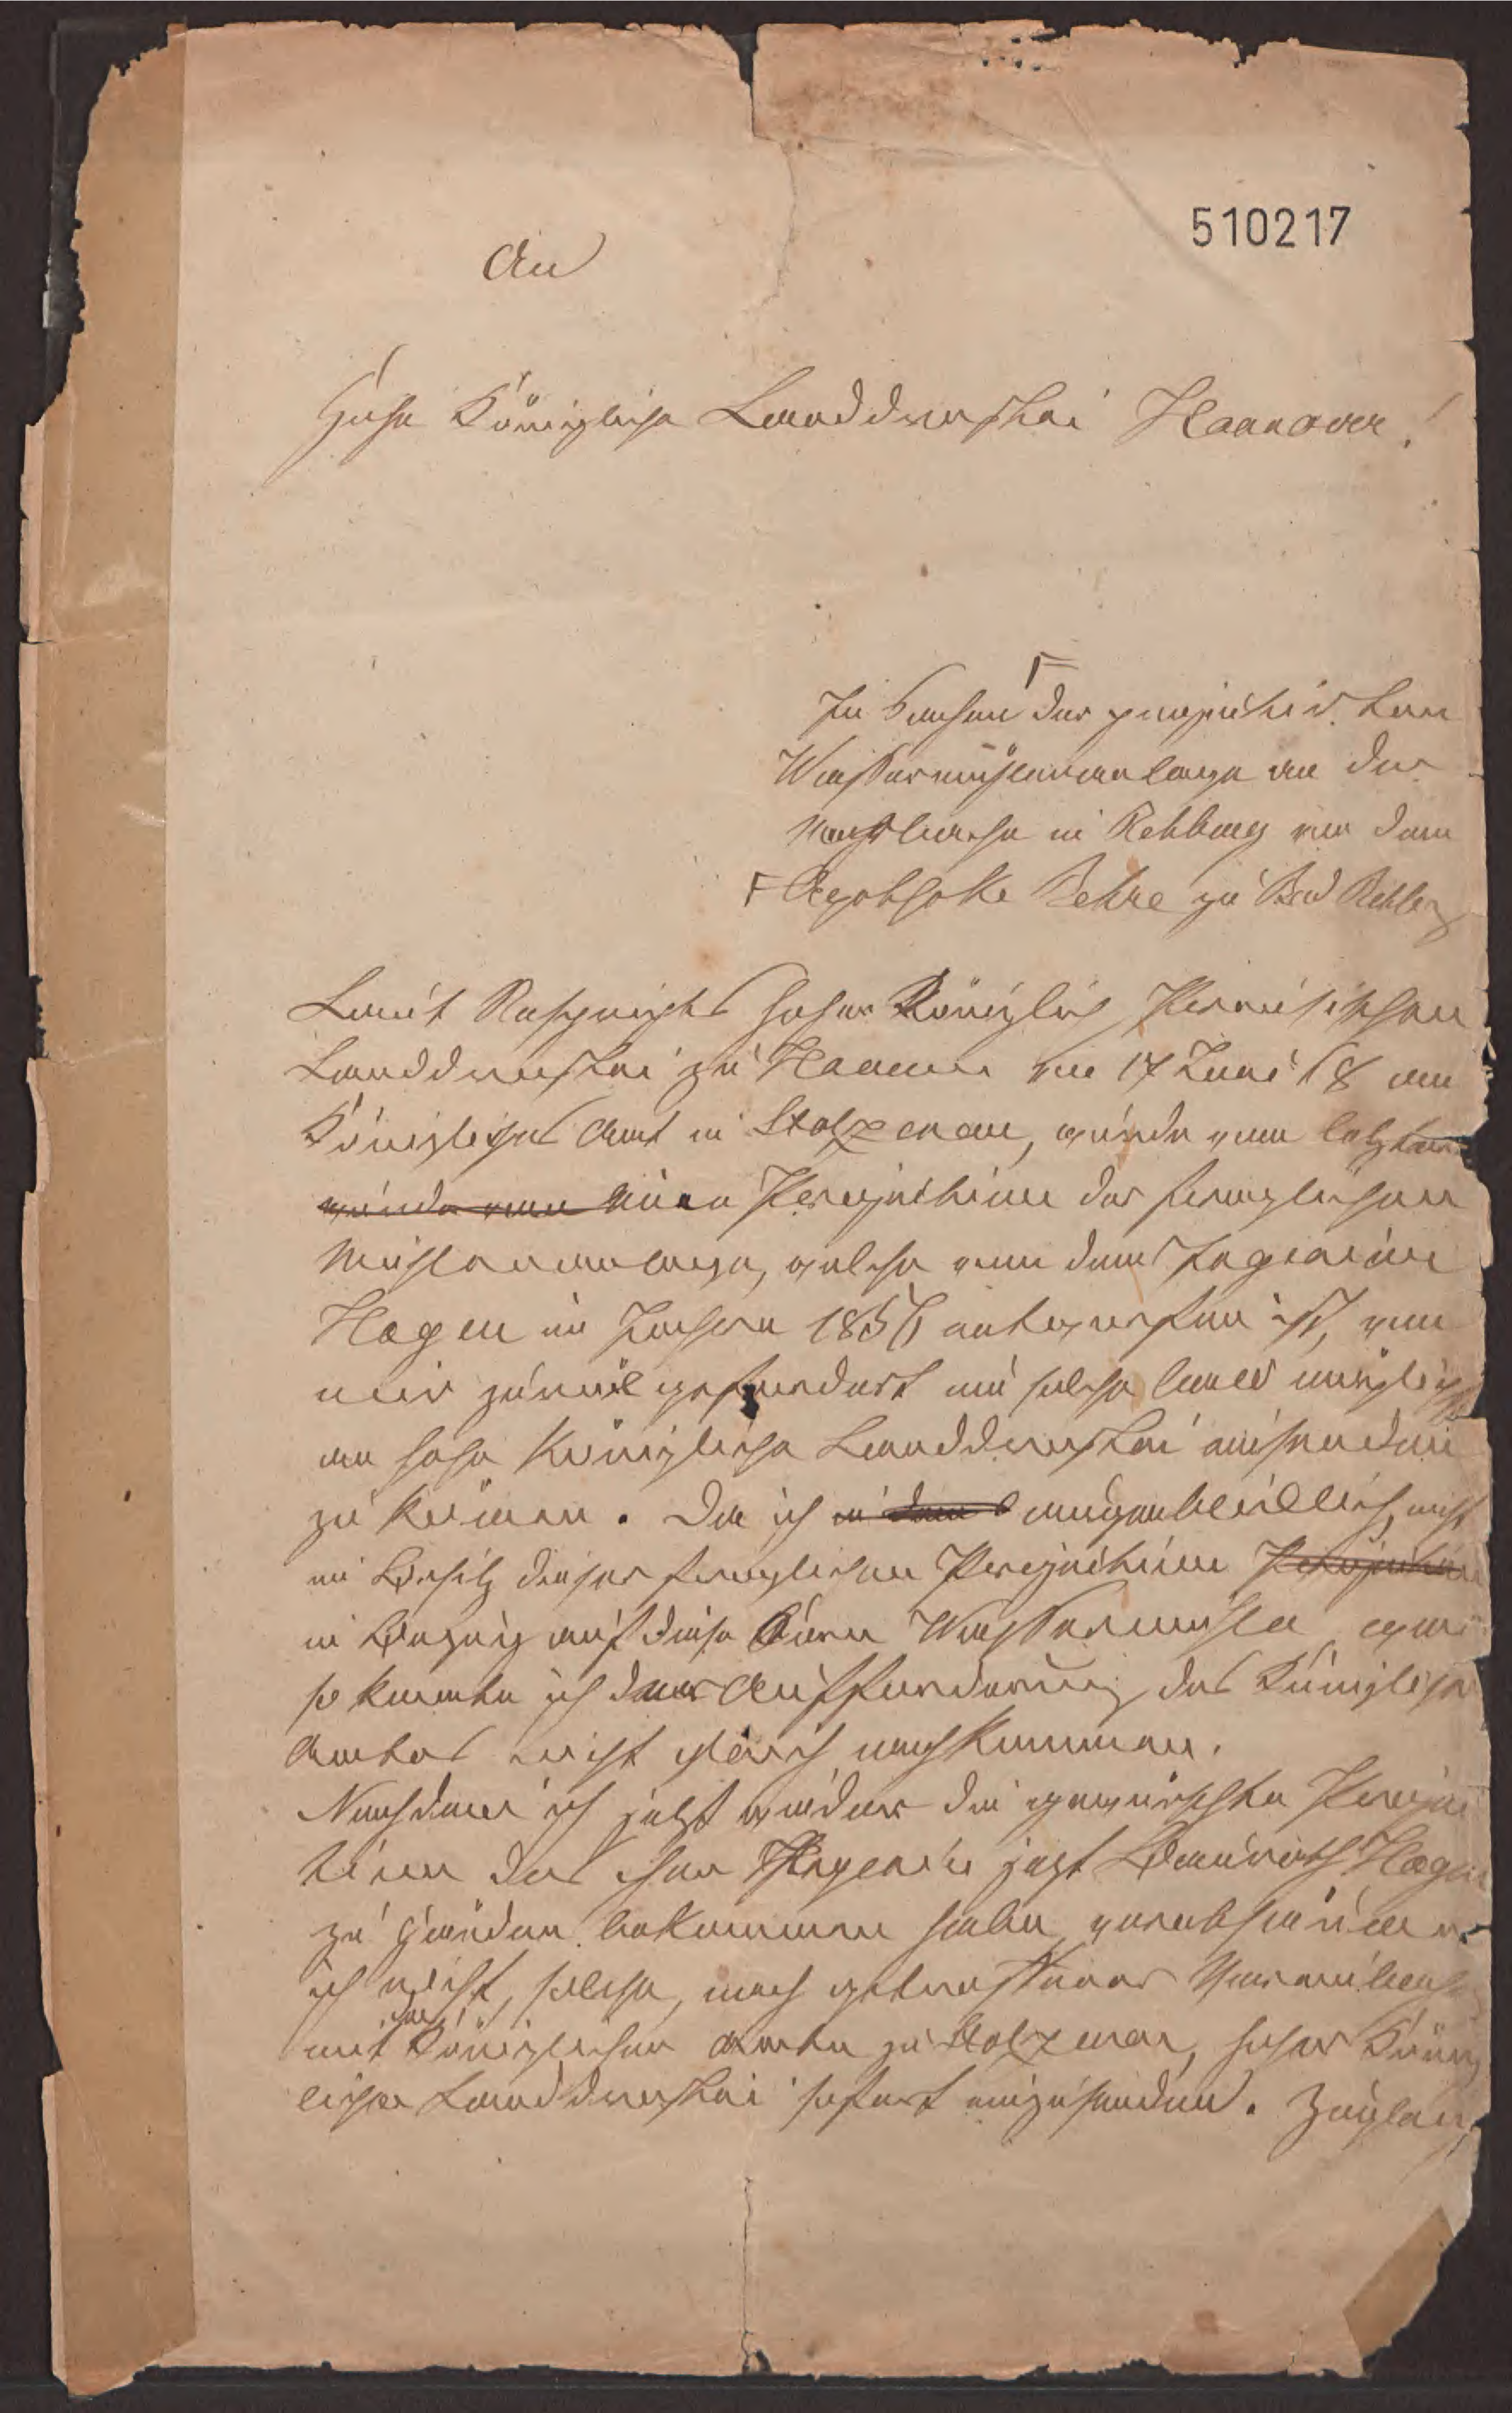 510217
An
Hohe Königliche Landdrostei Hannover!
In Sachen der projectirten
Wassermühlenanlage an der
in Rehburg von dem
Apotheke Behre zu Bad Rehburg
Laut Rescripts hoher Königlich Preusischen
Landdrostei zu Hannover vom 17 Juni 18 am
Königliches Amt in Stolzenau, wurde vom letzteren
wurde von eine Projectirung der fraglichen
Mühlenanlage, welche von dem Ingenieur
Hagen im Jahren 1856 entworfen ist, von
mir gefordert um solche bald möglichst
an hohe Königliche Landdrostei einsenden
zu können. Da ich in dem augenblicklich nicht
im Besitz dieser fraglichen Projectirung
in Bezug auf diese Wassermühle war
so konnte ich der Aufforderung des Königlichen
Amtes nicht gleich nachkommen.
Nachdem ich jetzt wieder die gewünschte Projec
tirung des Ingenieur jetzt Baurath Hagen
zu Händen bekommen habe, verabsäume
ich nicht, solche, nach getroffener
mit dem Königlichen Amte zu Stolzenau, hoher König
lichen Landdrostei sofort einzusenden. Zugleich